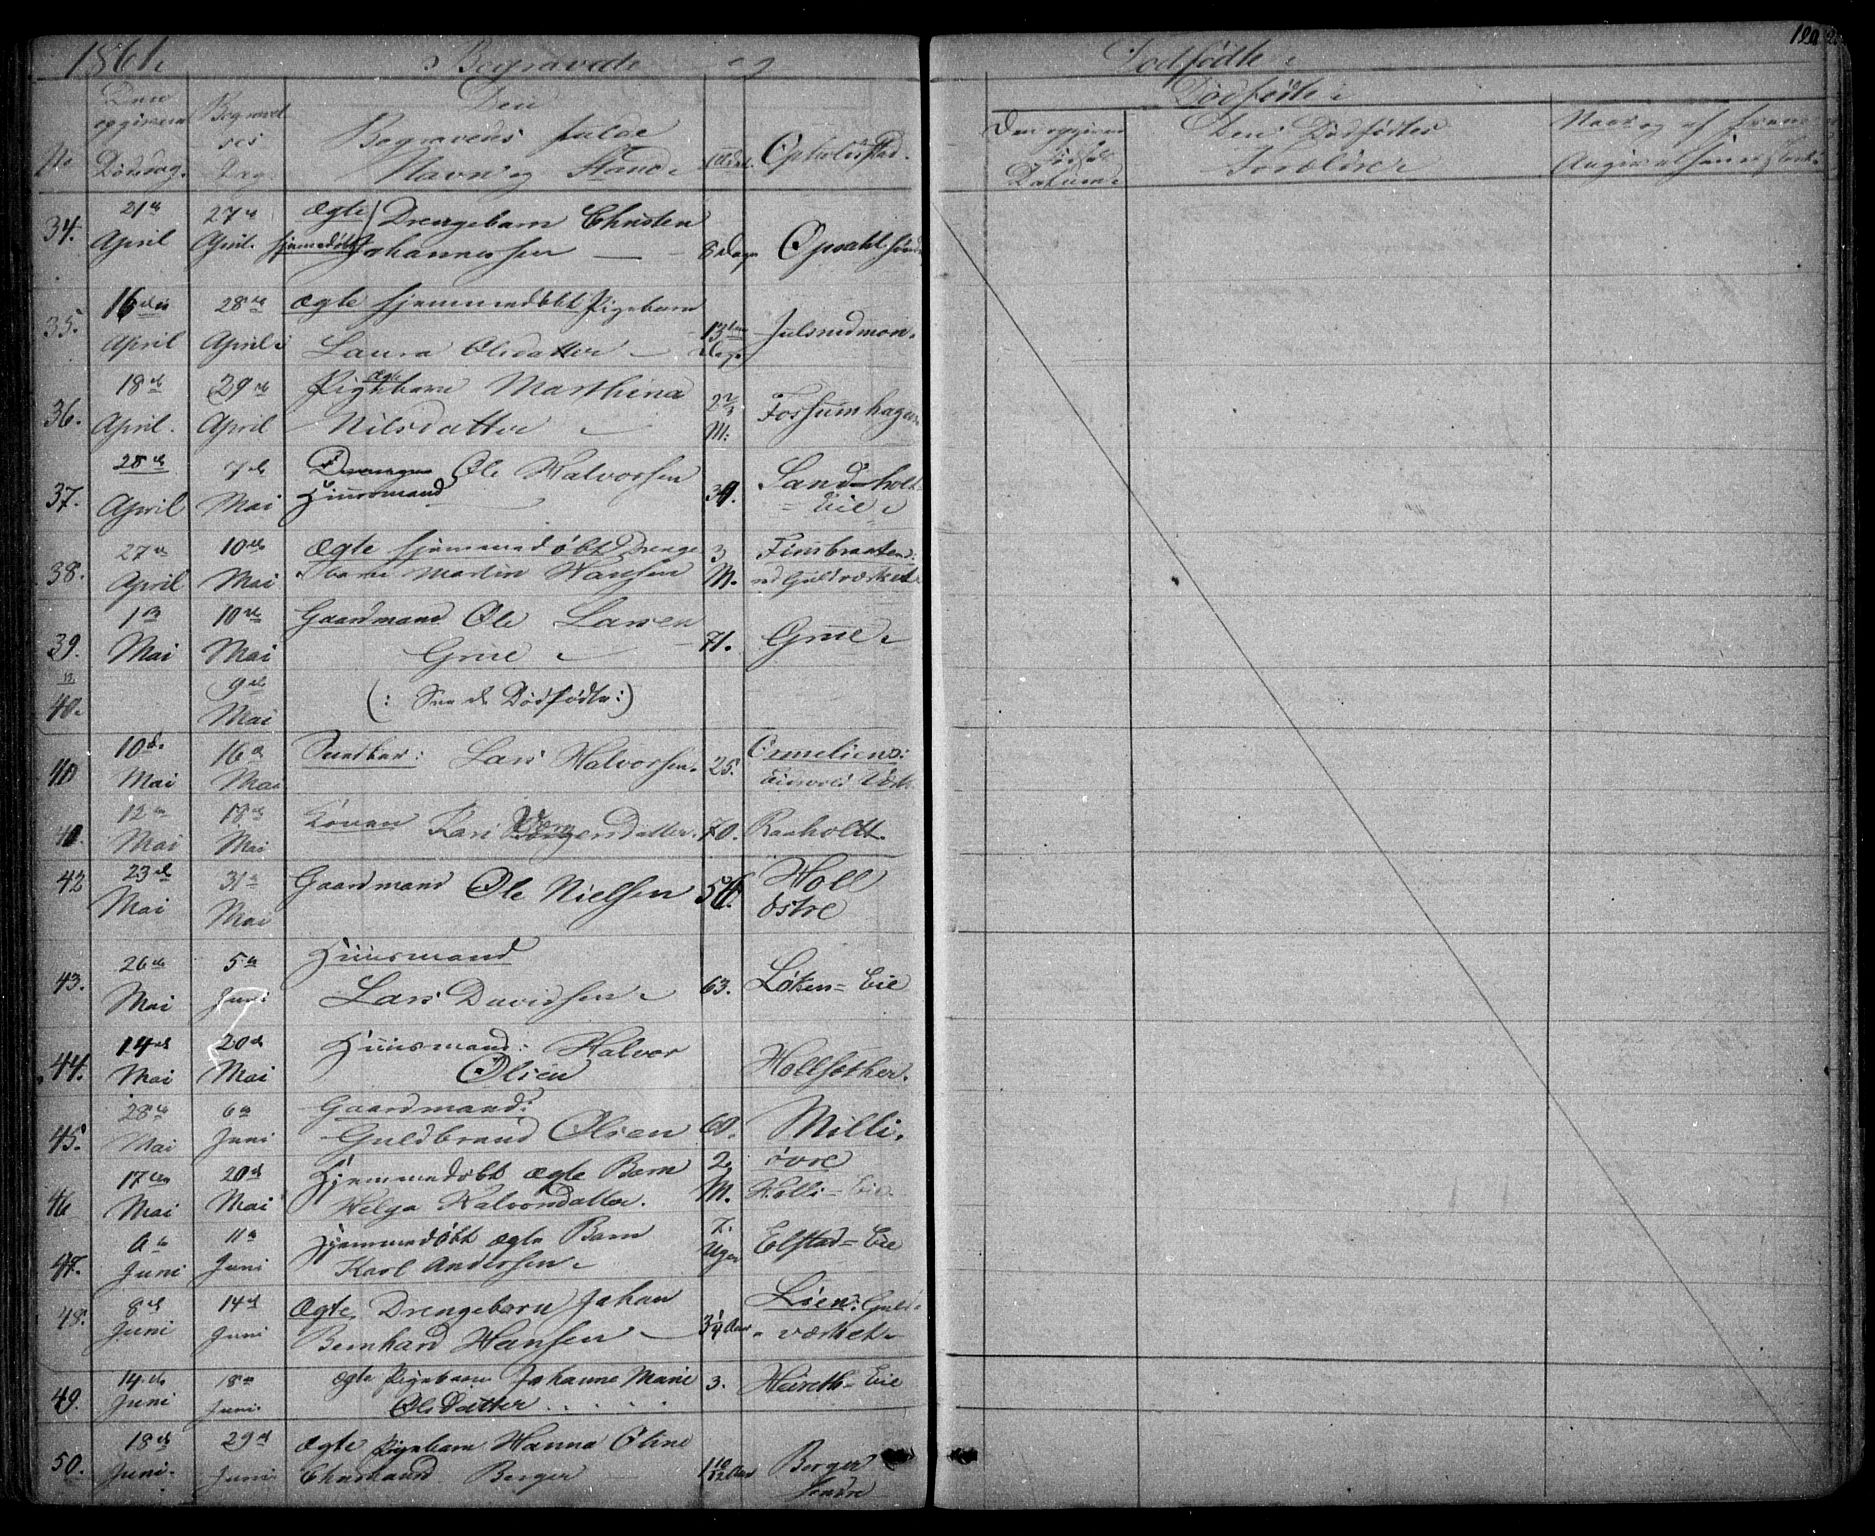 1861. Begravede og Dødfødte.
120
No
Den opgivne Dødsdag.
Begravelses Dag.
Den Begravedes fulde Navn og Stand.
Alder.
Opholdssted.
Dødfødte.
Den opgivne Fødsels Datum.
Den Dødfødtes Forældre
34. 21de April 27de April Ægte hjemmedøbt Drengebarn Christen
Johannessen 8 Dage Opsahl søndre
35. 16den April 28de April Ægte hjemmedøbt Pigebarn
Laura Olsdatter 13ten Dage Julsrudmoen.
36. 18de April. 29de April Ægte Pigebarn Marthina
Nilsdatter M: Fossumhagen
37. 28de April 7de Mai Ole Halvorsen
Huusmand 39. Sandholt
= Eie
38. 27de April 10de Mai Ægte hjemmedøbt Drenge
barn Martin Hansen 3 M. Finsbraaten:
ved Guldværket
39. 1ste Mai 10de Mai Gaardmand Ole Larsen
Grue 71. Grue
40. 9de Mai (: See de Dødfødte:)
40 10de Mai 16de Mai Lars Halvorsen. 25.
Eidsvold Værk
41. 12te Mai 18de Mai Konen Kari 70. Raaholtt.
42 23de Mai 31te Mai Gaardmand Ole Nielsen 54. Holl
østre
43. 26de Mai 5te Juni Huusmand
Lars Davidsen 63. Løken = Eie
44. 14de Mai 20de Mai Huusmand: Halvor
Olsen Hollsæther.
45. 28de Mai 6te Juni Gaardmand:
Guldbrand Olsen 60. Milli.
øvre
46 17de Mai 20de Mai Hjemmedøbt ægte Barn
Helga Halvorsdatter. 2 M. Holli = Eie
47. Juni 11te Juni Hjemmedøbt ægte Barn
Karl Andersen 7. Uger Elstad = Eie
48. 8de Juni 14de Juni Ægte Drengebarn Johan
Bernhard Hansen 3¼ Aar Løen: Guld
værket
49. 14de Juni 18de Juni. ægte Pigebarn Johanne Marie
Olsdatter 3. Heireth = Eie
50. 18de Juni. 29de Juni Ægte Pigebarn Hanna Oline
Berger 1 10/12 Aar Berger
søndre